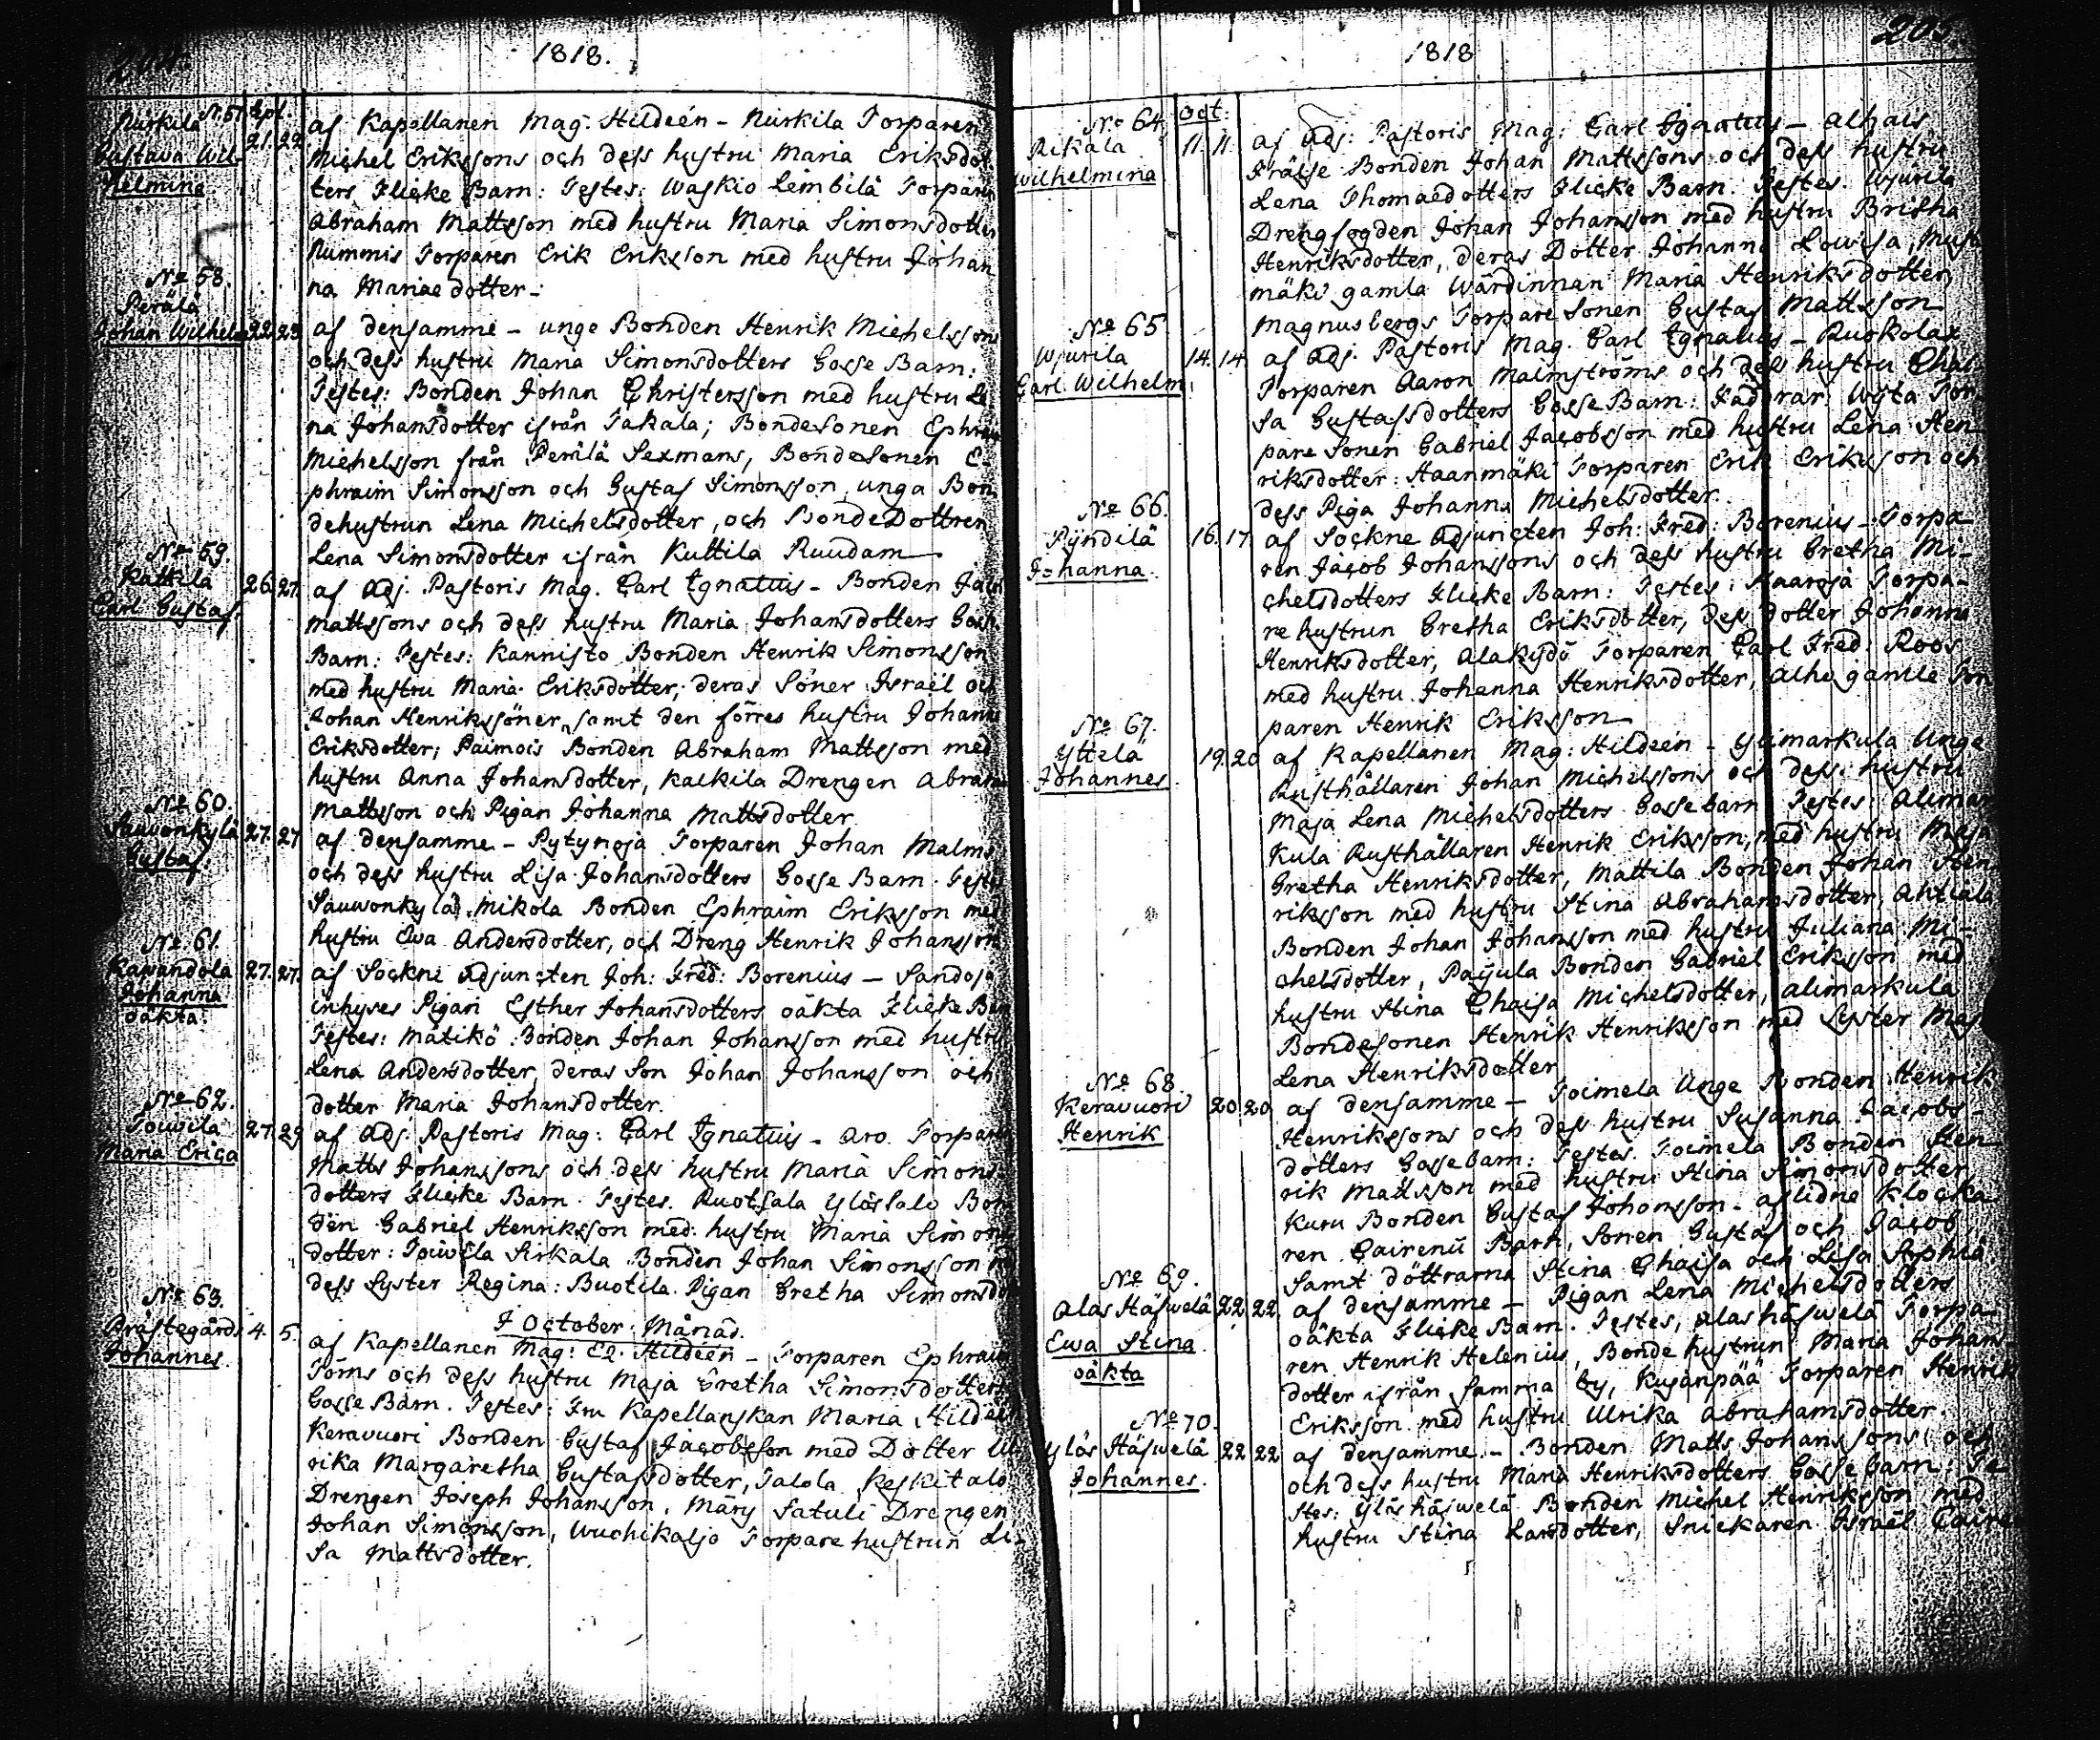 1818.
Nurkila N:57 Sept.
Gustava Wil- 21. 22
helmina
af Kapellanen Mag. Hildeén - Nurkila Torparen
Michel Erikssons och dess hustru Maria Eriksdot
ters Flicke Barn: Testes: Waskio Leimbilä Torparen
Abraham Mattsson med hustru Maria Simonsdotter
Nummis Torparen Erik Eriksson med hustru Johan
na Mariae dotter -
No 58.
Perälä
Johan Wilhelm 22. 23
af densamme - unge Bonden Henrik Michelssons
och dess hustru Maria Simonsdotters Gosse Barn:
Testes: Bonden Johan Christersson med hustru Le
na Johansdotter ifrån Takala; Bondesonen Ephraim
Michelsson från Perilä Sexmans, Bondesonen E-
phraim Simonsson och Gustaf Simonsson, unga Bon
dehustrun Lena Michelsdotter, och Bonde Dottren
Lena Simonsdotter ifrån Kuttila Ruudam
No 59.
Kalkila 26. 27.
Carl Gustaf.
af Adj. Pastoris Mag. Carl Ignatius - Bonden Jacob
Mattssons och dess hustru Maria Johansdotters Gosse
Barn: Testes: Kannisto Bonden Henrik Simonsson
med hustru Maria Eriksdotter; deras Söner Israël och
Johan Henrikssöner, samt den förres hustru Johanna
Eriksdotter; Paimois Bonden Abraham Mattsson med
hustru Anna Johansdotter, Kalkila Drengen Abraham
Mattsson och Pigan Johanna Mattsdotter
No 60.
Sauvonkylä 27. 27
Gustaf
af densamme - Pytynoja Torparen Johan Malms
och dess hustru Lisa Johansdotters Gosse Barn. Testes
Sauwonkylä Mikola Bonden Ephraim Eriksson med
hustru Ewa Andersdotter, och Dreng Henrik Johansson
No 61.
Kawandola 27. 27.
Johanna
oäkta:
af Sockne Adjuncten Joh: Fred: Borenius - Sandoja
inhyses Pigan Esther Johansdotters oäkta Flicke Barn
Testes: Mätikö Bonden Johan Johansson med hustru
Lena Andersdotter, deras Son Johan Johansson och
dotter Maria Johansdotter.
No 62.
Touvila 27. 29
Maria Erica
af Adj. Pastoris Mag: Carl Ignatius - Aro Torparen
Matts Johanssons och dess hustru Maria Simons
dotters Flicke Barn. Testes. Ruotsala Ylössalo Bon
den Gabriel Henriksson med hustru Maria Simons
dotter: Touvila Sirkala Bonden Johan Simonsson med
dess Syster Regina: Buotila Pigan Gretha Simonsdot
I October Månad.
No 63.
Prästegårds 4. 5.
Johannes
af Kapellanen Mag: El. Hildeén - Torparen Ephraim
Töms och dess hustru Maja Gretha Simonsdotters
Gosse Barn. Testes: Fru Kapellanskan Maria Hildeén
Keravuori Bonden Gustaf Jacobsson med Dotter Ul
rika Margaretha Gustafsdotter, Jalola Keskitalo
Drengen Joseph Johansson, Märy Satuli Drengen
Johan Simonsson, Wuohikaljo Torpare hustrun Li-
sa Mattsdotter.
1818
205.
No 64. Oct:
Rikala 11. 11.
Wilhelmina
af Adj: Pastoris Mag: Carl Ignatius - Alhais
Frälse Bonden Johan Mattssons och dess hustru
Lena Thomaedotters Flicke Barn. Testes. Wjurila
Drengfogden Johan Johansson med hustru Britha
Henriksdotter, deras Dotter Johanna Lovisa, Must
mäki gamla Wärdinnan Maria Henriksdotter
Magnusbergs Torpare Sonen Gustaf Mattsson
No 65
Wjurila 14. 14
Carl Wilhelm
af Adj. Pastoris Mag. Carl Ignatius - Ruokolax
Torparen Aaron Malmströms och dess hustru Chai
sa Gustafsdotters Gosse Barn: Faddrar: Wyta Tor
pare Sonen Gabriel Jacobsson med hustru Lena Hen
riksdotter: Haanmäki Torparen Erik Eriksson och
dess Piga Johanna Michelsdotter.
No 66.
Pyndilä 16. 17.
Johanna.
af Sockne Adjuncten Joh: Fred: Borenius - Torpa
ren Jacob Johanssons och dess hustru Gretha Mi-
chelsdotters Flicke Barn: Testes: Haaroja Torpa-
re hustrun Gretha Eriksdotter, dess dotter Johanna
Henriksdotter, Alakydö Torparen Carl Fred: Roos
med hustru Johanna Henriksdotter, Alho gamle Tor
paren Henrik Eriksson
No 67.
Yttelä 19. 20
Johannes
af Kapellanen Mag: Hildeén - Ylimarkula Unge
Rusthållaren Johan Michelssons och dess hustru
Maja Lena Michelsdotters Gosse barn Testes: Alimar
kula Rusthållaren Henrik Eriksson, med hustru Maja
Gretha Henriksdotter, Mattila Bonden Johan Hen
riksson med hustru Stina Abrahamsdotter, Anttala
Bonden Johan Johansson med hustru Juliana Mi-
chelsdotter, Paijula Bonden Gabriel Eriksson med
hustru Stina Chaisa Michelsdotter, Alimarkula
Bondesonen Henrik Henriksson med Syster Maj
Lena Henriksdotter
No 68.
Keravuori 20 20
Henrik
af densamme - Toimela Unge Bonden Henrik
Henrikssons och dess hustru Susanna Jacobs-
dotters Gosse barn: Testes. Toimela Bonden Hen
rik Mattsson med hustru Stina Simonsdotter
Kuru Bonden Gustaf Johansson - aflidne Klocka
ren Cairenii Barn, Sonen Gustaf och Jacob
Samt döttrarna Stina Chaisa och Lisa Sophia
No 69.
Alas Häjwelä 22 22
Ewa Stina
oäkta
af densamme - Pigan Lena Michelsdotters
oäkta Flicke Barn. Testes, Alas häjwelä Torpa-
ren Henrik Helenius, Bonde hustrun Maria Johans
dotter ifrån samma by, Kujanpää Torparen Henrik
Eriksson med hustru Ulrika Abrahamsdotter.
No 70.
Ylös Häjwelä 22 22
Johannes.
af densamme - Bonden Matts Johanssons och
och dess hustru Maria Henriksdotters Gosse barn: Te
stes: Ylös häjwelä Bonden Michel Henriksson med
hustru Stina Larsdotter, Snickaren Israël Caire